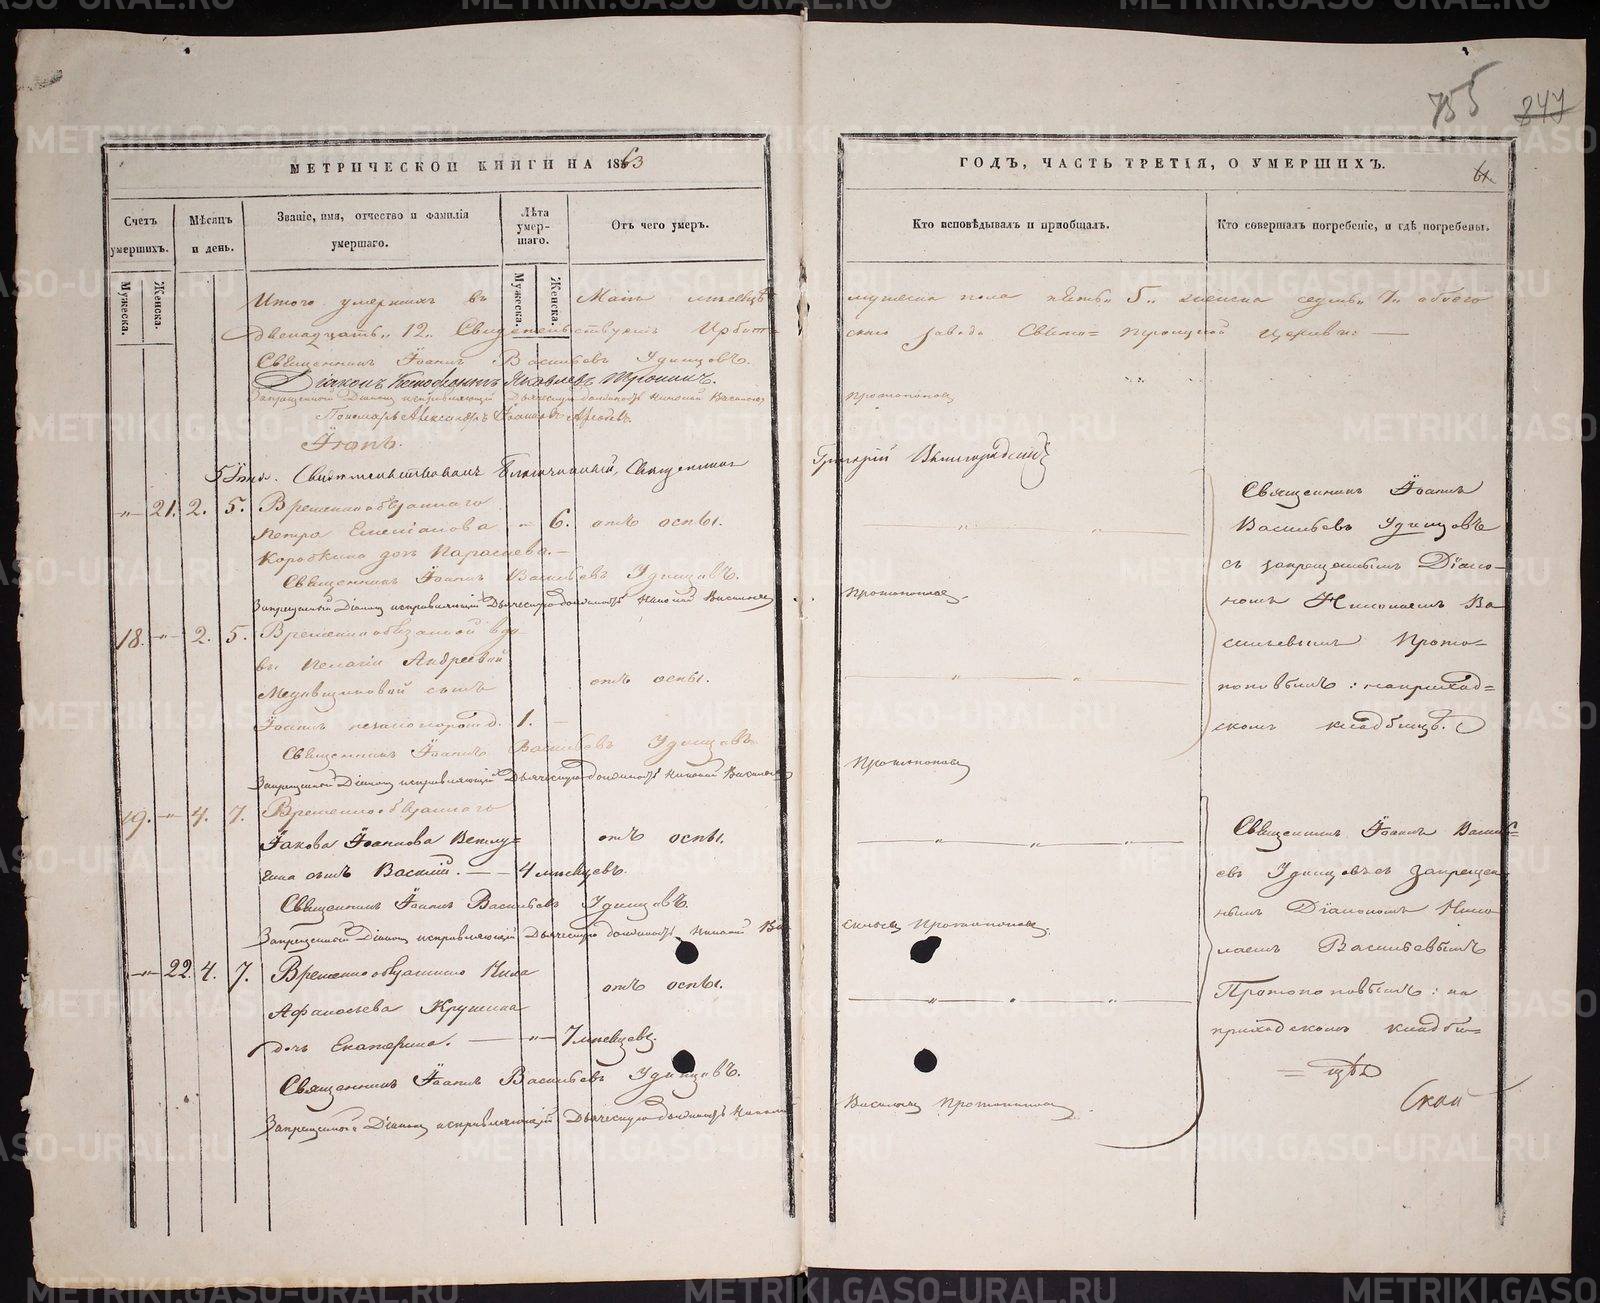 755 247
МЕТРИЧЕСКОЙ КНИГИ НА 1863
ГОДЪ, ЧАСТЬ ТРЕТІЯ, О УМЕРШИХЪ.
Счетъ умершихъ.
Мужеска. Женска.
Мѣсяцъ и день.
Званіе, имя, отчество и фамилія умершаго.
Лѣта умер-
шаго.
Мужеска. Женска.
Отъ чего умеръ.
Кто исповѣдывалъ и пріобщалъ.
Кто совершалъ погребеніе, и гдѣ погребены.
Итого умершихъ въ Маѣ мѣсяцѣ мужеска пола пять „5„ женска седмь „7„ обоего
двенадцать „12„
заводъ Свято= Троицкой церкви
Священникъ Іоаннъ Васильевъ Удинцовъ.
Діаконъ Яковлевъ
Запрещенный Діаконъ исправляющій Дьяческую должность Николай Васильевъ Протопоповъ
Пономарь Александръ
Іюнь.
Свидѣтельствовалъ Благочинный, Священникъ Григорій
21. 2. 5. Временнообязаннаго
Петра Емельянова 6. отъ оспы.
дочь
Священникъ Іоаннъ Васильевъ Удинцовъ.
Запрещенный Діаконъ исправляющій Дьяческую должность Николай Васильевъ Протопоповъ.
18. 2. 5. Временнообязанной вдо
вы Пелагіи Андреевой
сынъ отъ оспы.
Іоаннъ незаконорожд. 1.
Священникъ Іоаннъ Васильевъ Удинцовъ.
Запрещенный Діаконъ исправляющій Дьяческую должность Николай Васильевъ Протопоповъ
Священникъ Іоаннъ
Васильевъ Удинцовъ
съ запрещеннымъ Діако-
номъ Николаемъ Ва
сильевымъ Прото-
поповымъ: на приход=
скомъ кладбищѣ.
19. 4. 7. Временнообязаннаго
Іакова Іоаннова Ветлу=
гина сынъ Василій. 4 мѣсяцевъ. отъ оспы.
Священникъ Іоаннъ Васильевъ Удинцовъ.
Запрещенный Діаконъ исправляющій Дьяческую должность Николай Ва
сильевъ Протопоповъ.
22. 4. 7. Временнообязаннаго
Крушина отъ оспы.
дочь Екатерина. 7 мѣсяцевъ.
Священникъ Іоаннъ Васильевъ Удинцовъ.
Запрещенный Діаконъ исправляющій Дьяческую должность Николай
Васильевъ Протопоповъ
Священникъ Іоаннъ Василь=
евъ Удинцовъ съ запрещен
нымъ Діакономъ Нико
лаемъ Васильевымъ
Протопоповымъ: на
приходскомъ кладби=
= щѣ
METRIKI.GASO-URAL.RU